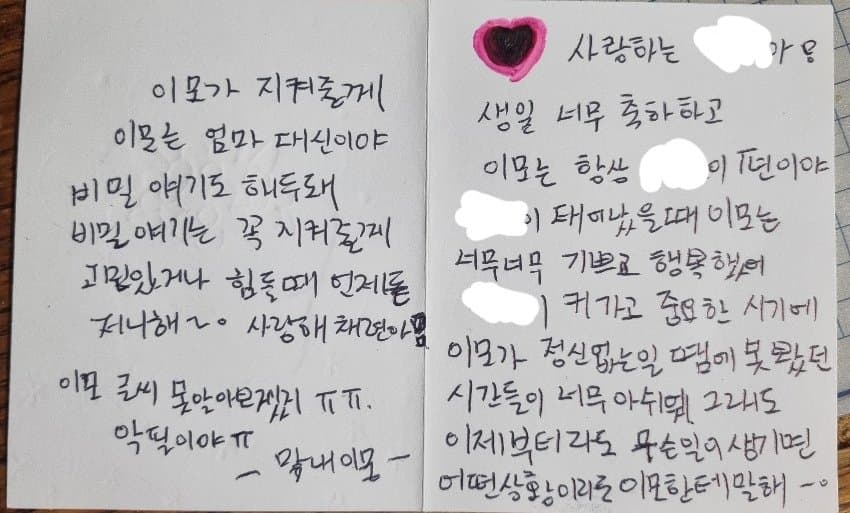 사랑하는 아
생일 너무 축하하고
이모는 항상 이 편이야
이 태어났을때 이모는
너무너무 기쁘고 행복했어
커가고 중요한 시기에
이모가 정신없는일 땜에 못봤던
시간들이 너무 아쉬워 그래도
이제부터라도 무슨일이 생기면
어떤상황이라도 이모한테말해 ~
이모가 지켜줄게
이모는 엄마 대신이야
비밀 얘기도 해두돼
비밀얘기는 꼭 지켜줄게
고민있거나 힘들때 언제든
저나해~ 사랑해 채연아
이모 글씨 못알아보겠지 ㅠㅠ.
악필이야ㅠ
- 막내이모 -